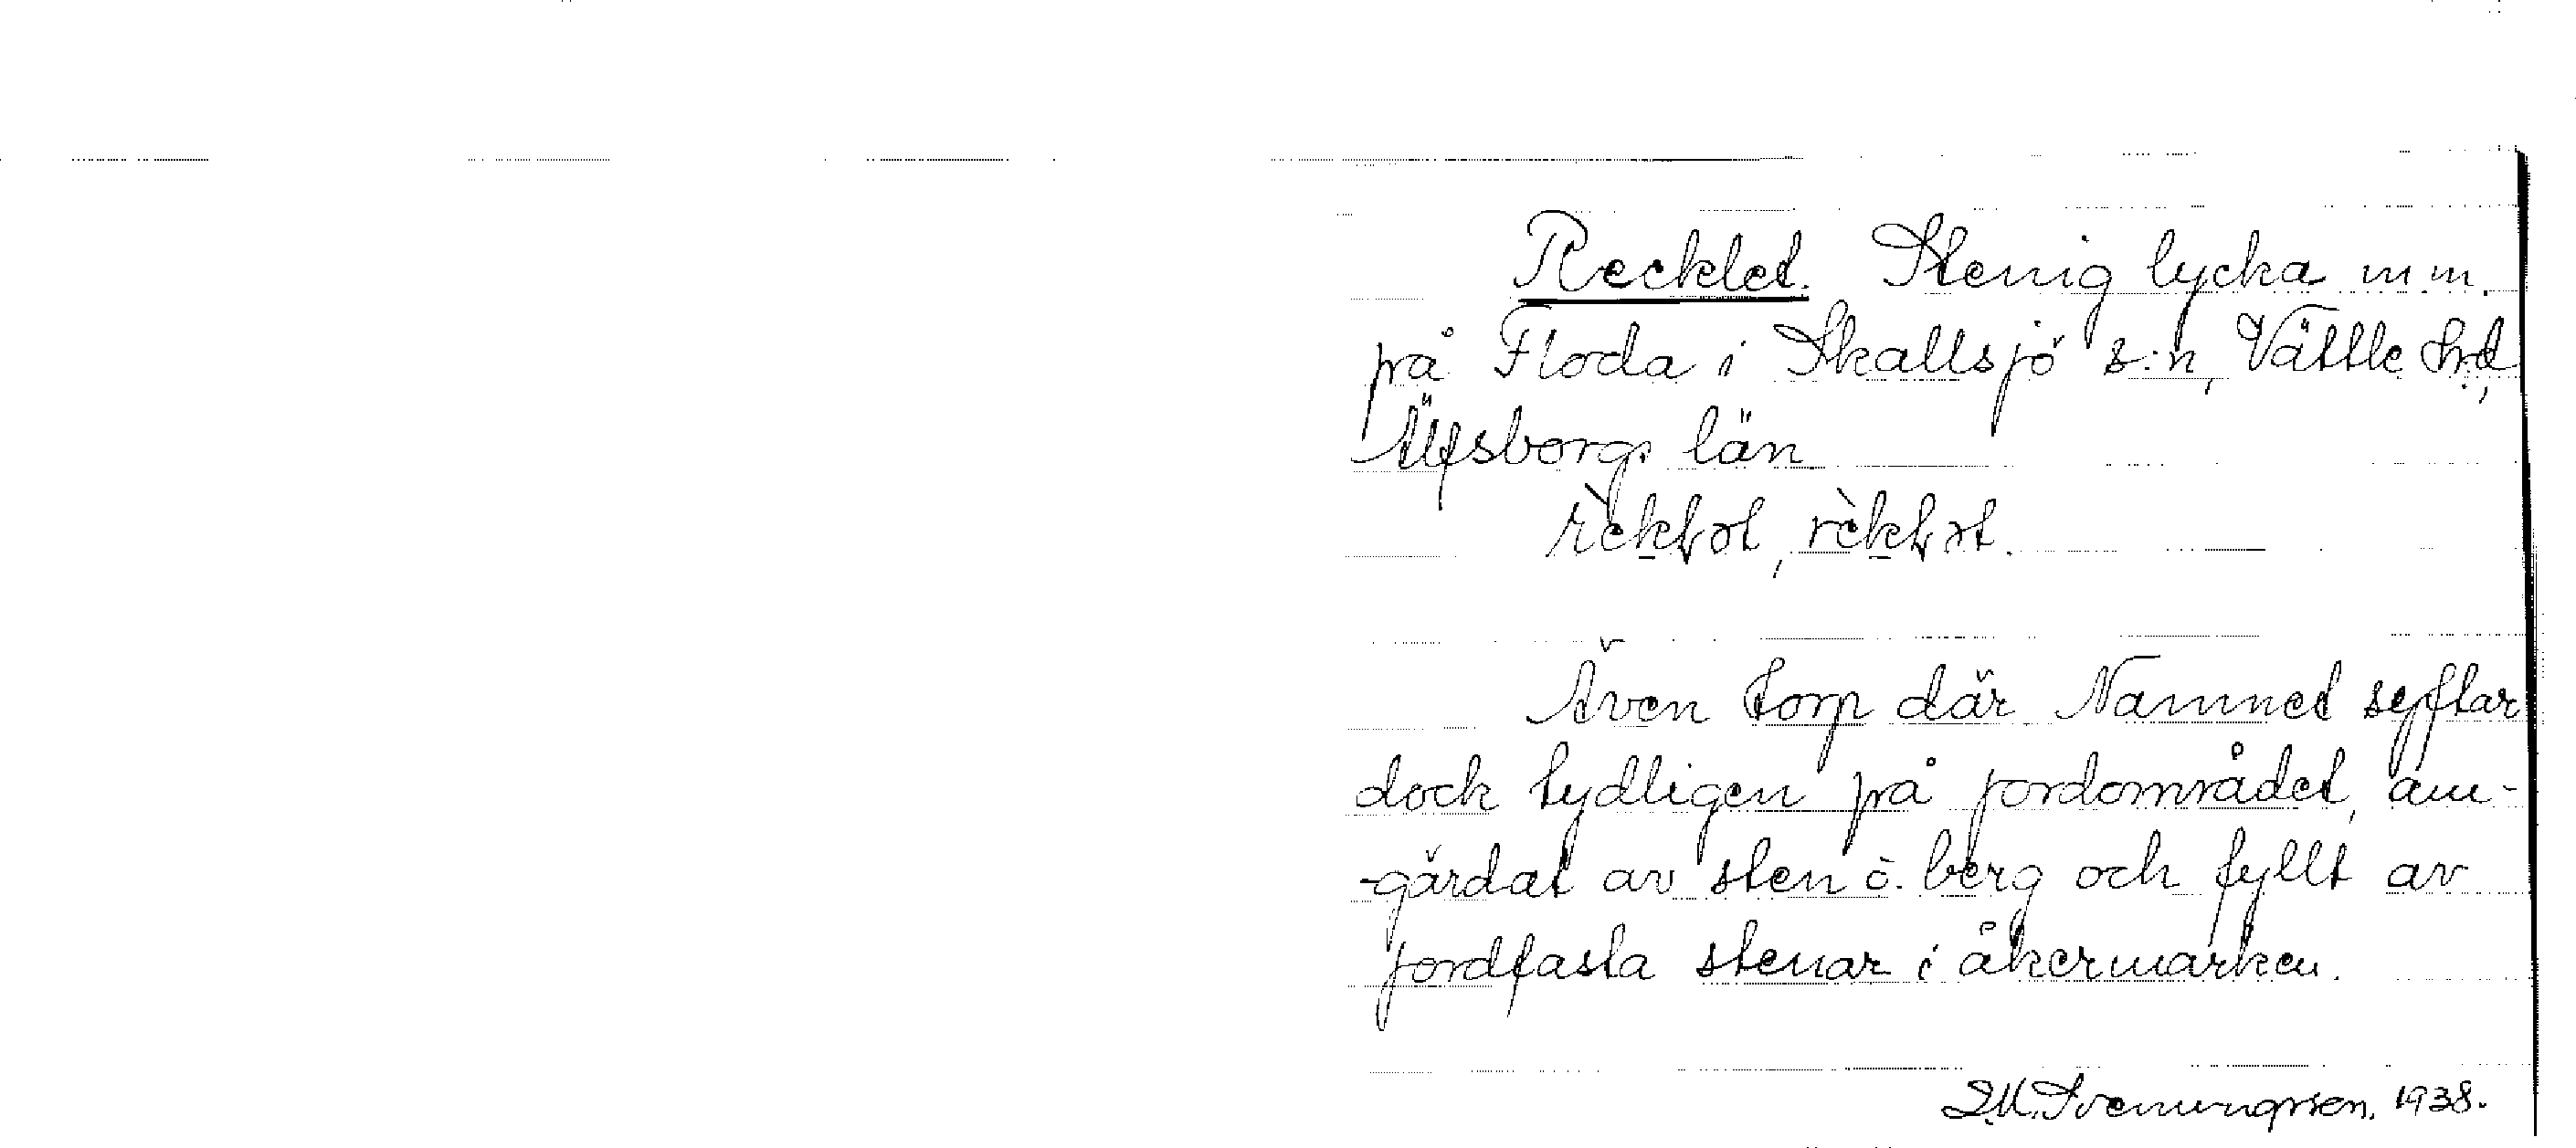 Recklet. Stenig lycka m.m.
på Floda i Skallsjö s:n, Vättle hd.,
Älfsborgs län.
rèkłət, rèkłət.
Även torp där Namnet syftar
dock tydligen på jordområdet, am-
-gärdat av sten o. berg och fyllt av
jordfasta stenar i åkermarken.
Svenungsson. 1938.